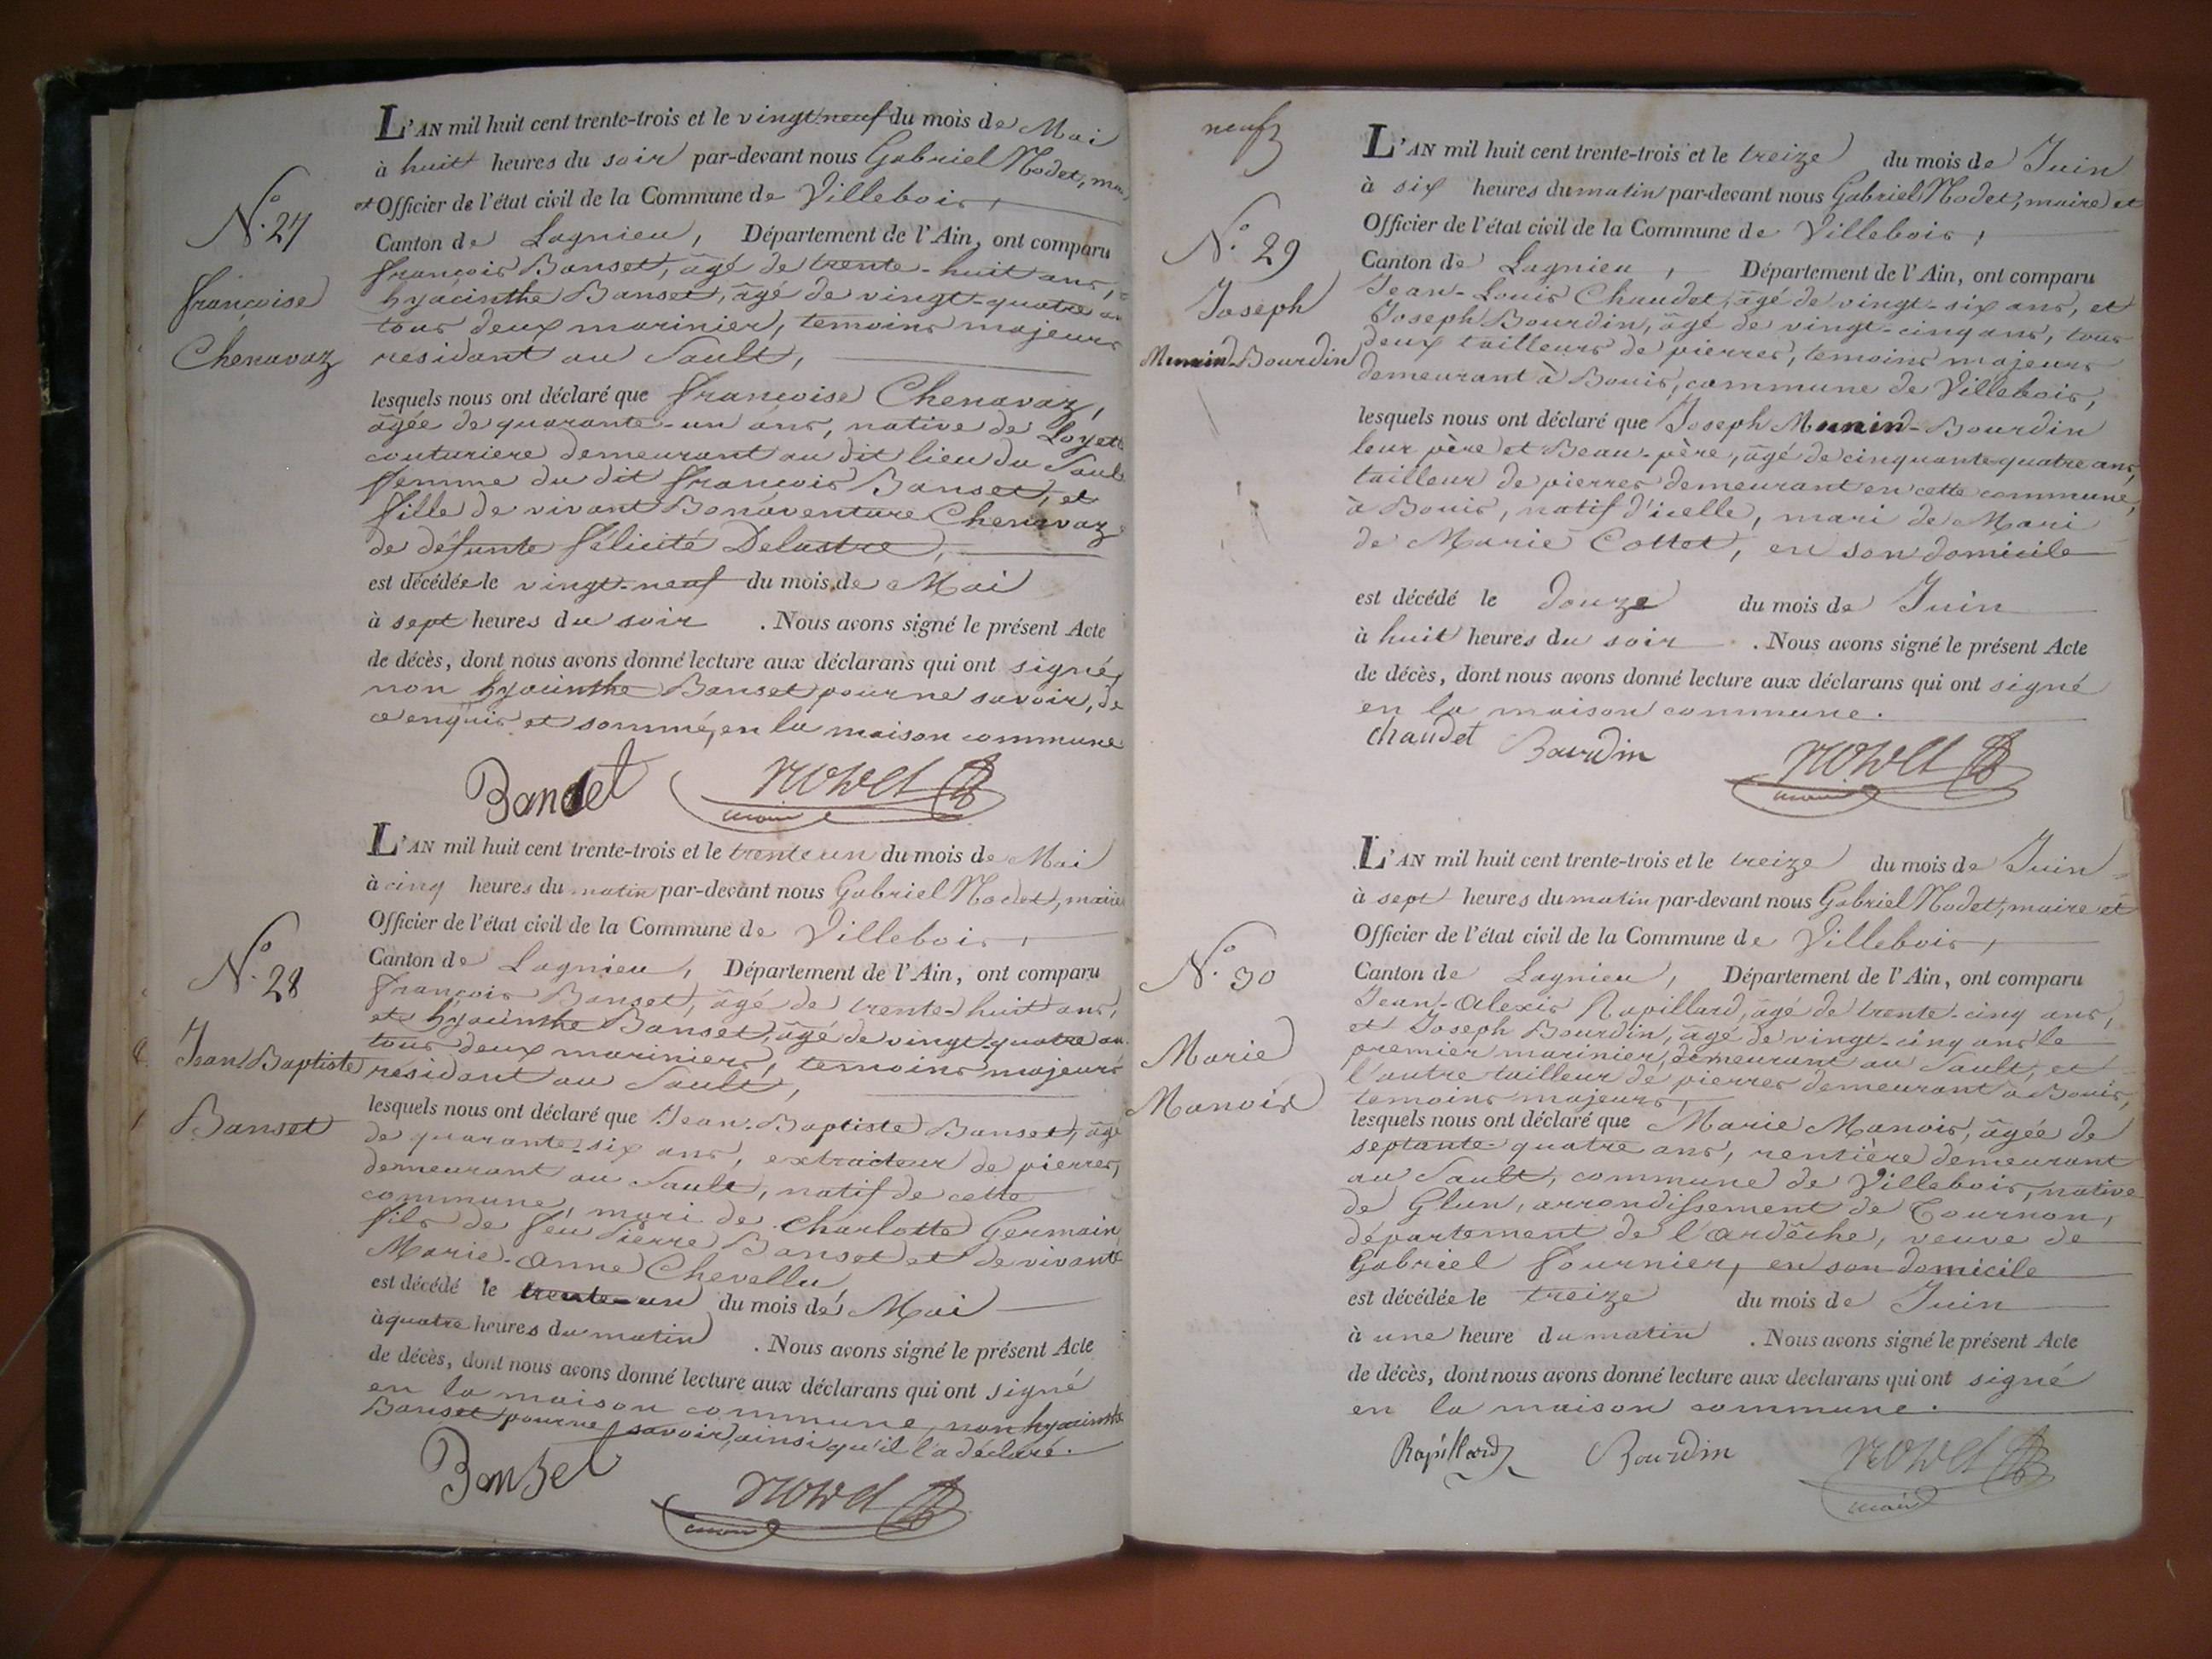 N.º 27
Françoise
Chenavaz
L'AN mil huit cent trente-trois et le vingt-neuf du mois de Mai
à huit heures du soir par-devant nous Gabriel Nodet,
et Officier de l'état civil de la Commune de Villebois,
Canton de Lagnieu, Département de l'Ain, ont comparu
François Banset, âgé de trente-huit ans,
hyacinthe Banset, âgé de vingt-quatre
tous deux marinier, temoins majeurs
residant au Sault,
lesquels nous ont déclaré que Françoise Chenavaz,
âgée de quarante-un ans, native de
couturiere demeurant au dit lieu du
femme du dit François Banset, et
fille de vivant Bonaventure Chenavaz
de défunte félicité Delastre,
est décédée le vingt-neuf du mois de Mai
à sept heures du soir . Nous avons signé le présent Acte
de décès, dont nous avons donné lecture aux déclarans qui ont signé,
non hyacinthe Banset pour ne savoir, de
ce enquis et sommé, en la maison commune
Banset Nodet
maire
N.º 28
Jean Baptiste
Banset
L'AN mil huit cent trente-trois et le trente un du mois de Mai
à cinq heures du matin par-devant nous Gabriel Nodet, maire
Officier de l'état civil de la Commune de Villebois,
Canton de Lagnieu, Département de l'Ain, ont comparu
François Banset, âgé de trente-huit ans,
et hyacinthe Banset, âgé de vingt-quatre an
tous deux mariniers, temoins majeurs
residant au Sault,
lesquels nous ont déclaré que Jean-Baptiste Banset, âgé
de quarante-six ans, extracteur de pierres,
demeurant au Sault, natif de cette
commune, mari de Charlotte Germain,
fils de feu Pierre Banset et de vivante
Marie-Anne Chevellu,
est décédé le trente-un du mois de Mai
à quatre heures du matin . Nous avons signé le présent Acte
de décès, dont nous avons donné lecture aux déclarans qui ont signé
en la maison commune, non hyacinthe
Banset pour ne savoir, ainsi qu'il l'a déclaré.
Banset Nodet
maire
neuf
N.º 29
Joseph
Munin-Bourdin
L'AN mil huit cent trente-trois et le treize du mois de Juin
à six heures du matin par-devant nous Gabriel Nodet, maire et
Officier de l'état civil de la Commune de Villebois,
Canton de Lagnieu, Département de l'Ain, ont comparu
Jean-Louis Chaudet, âgé de vingt-six ans, et
Joseph Bourdin, âgé de vingt-cinq ans, tous
deux tailleurs de pierres, temoins majeurs
demeurant à Bouis, commune de Villebois,
lesquels nous ont déclaré que Joseph Munin-Bourdin
leur père et Beau-père, âgé de cinquante-quatre ans,
tailleur de pierres demeurant en cette commune,
à Bouis, natif d'icelle, mari de Mari
de Marie Cottet, en son domicile
est décédé le douze du mois de Juin
à huit heures du soir . Nous avons signé le présent Acte
de décès, dont nous avons donné lecture aux déclarans qui ont signé
en la maison commune.
chaudet Bourdin Nodet
maire
N.º 30
Marie
Manois
L'AN mil huit cent trente-trois et le treize du mois de Juin
à sept heures du matin par-devant nous Gabriel Nodet, maire et
Officier de l'état civil de la Commune de Villebois,
Canton de Lagnieu, Département de l'Ain, ont comparu
Jean-Alexis Rapillard, âgé de trente-cinq ans,
et Joseph Bourdin, âgé de vingt-cinq ans le
premier marinier, demeurant au Sault, et
l'autre tailleur de pierres demeurant à Bouis,
temoins majeurs,
lesquels nous ont déclaré que Marie Manois, âgée de
septante-quatre ans, rentière demeurant
au Sault, commune de Villebois, native
de Glun, arrondissement de Tournon,
département de l'ardêche, veuve de
Gabriel Fournier, en son domicile
est décédée le treize du mois de Juin
à une heure du matin . Nous avons signé le présent Acte
de décès, dont nous avons donné lecture aux declarans qui ont signé
en la maison commune.
Rapillard Bourdin Nodet
maire